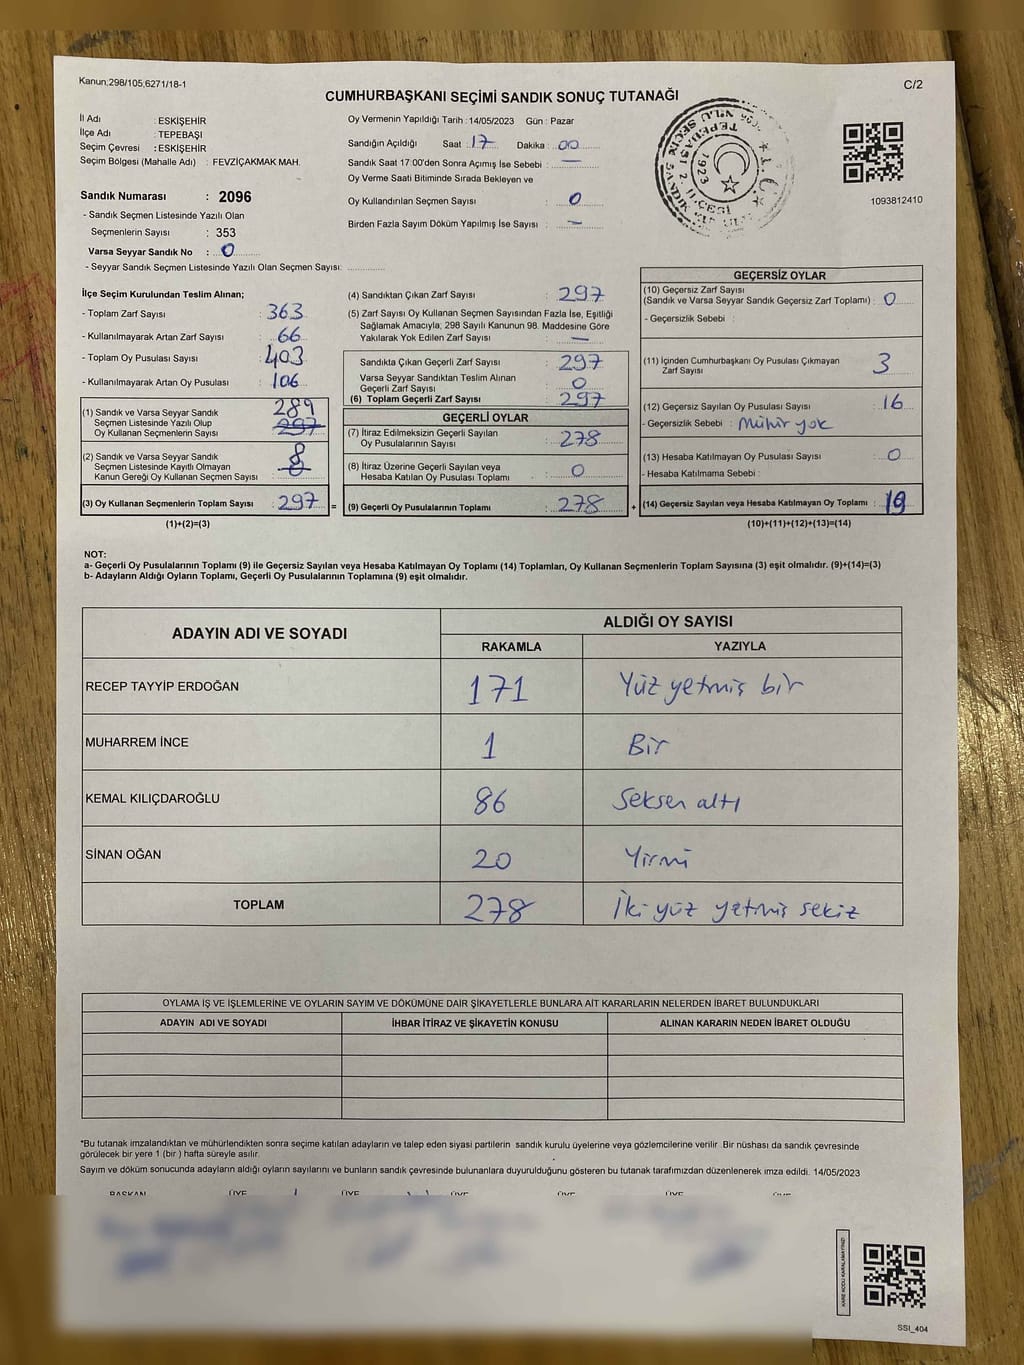 Kanun;298/105,6271/18-1
C/2
CUMHURBAŞKANI SEÇİMİ SANDIK SONUÇ TUTANAĞI
İl Adı : ESKİŞEHİR
İlçe Adı : TEPEBAŞI
Seçim Çevresi : ESKİŞEHİR
Seçim Bölgesi (Mahalle Adı) : FEVZİÇAKMAK MAH.
Sandık Numarası : 2096
- Sandık Seçmen Listesinde Yazılı Olan
Seçmenlerin Sayısı : 353
Varsa Seyyar Sandık No : 0
- Seyyar Sandık Seçmen Listesinde Yazılı Olan Seçmen Sayısı:
Oy Vermenin Yapıldığı Tarih : 14/05/2023 Gün : Pazar
Sandığın Açıldığı Saat : 17 Dakika : 00
Sandık Saat 17:00'den Sonra Açımış İse Sebebi : —
Oy Verme Saati Bitiminde Sırada Bekleyen ve
Oy Kullandırılan Seçmen Sayısı : 0
Birden Fazla Sayım Döküm Yapılmış İse Sayısı : —
T.C.
TEPEBAŞI 2. İLÇESİ
1923
1093812410
İlçe Seçim Kurulundan Teslim Alınan;
- Toplam Zarf Sayısı : 363
- Kullanılmayarak Artan Zarf Sayısı : 66
- Toplam Oy Pusulası Sayısı : 403
- Kullanılmayarak Artan Oy Pusulası : 106
(1) Sandık ve Varsa Seyyar Sandık
Seçmen Listesinde Yazılı Olup
Oy Kullanan Seçmenlerin Sayısı : 289 297
(2) Sandık ve Varsa Seyyar Sandık
Seçmen Listesinde Kayıtlı Olmayan
Kanun Gereği Oy Kullanan Seçmen Sayısı : 8
(3) Oy Kullanan Seçmenlerin Toplam Sayısı : 297 =
(1)+(2)=(3)
(4) Sandıktan Çıkan Zarf Sayısı : 297
(5) Zarf Sayısı Oy Kullanan Seçmen Sayısından Fazla İse, Eşitliği
Sağlamak Amacıyla; 298 Sayılı Kanunun 98. Maddesine Göre
Yakılarak Yok Edilen Zarf Sayısı : —
Sandıkta Çıkan Geçerli Zarf Sayısı : 297
Varsa Seyyar Sandıktan Teslim Alınan
Geçerli Zarf Sayısı : 0
(6) Toplam Geçerli Zarf Sayısı : 297
GEÇERLİ OYLAR
(7) İtiraz Edilmeksizin Geçerli Sayılan
Oy Pusulalarının Sayısı : 278
(8) İtiraz Üzerine Geçerli Sayılan veya
Hesaba Katılan Oy Pusulası Toplamı : 0
(9) Geçerli Oy Pusulalarının Toplamı : 278 +
GEÇERSİZ OYLAR
(10) Geçersiz Zarf Sayısı
(Sandık ve Varsa Seyyar Sandık Geçersiz Zarf Toplamı) : 0
- Geçersizlik Sebebi :
(11) İçinden Cumhurbaşkanı Oy Pusulası Çıkmayan
Zarf Sayısı : 3
(12) Geçersiz Sayılan Oy Pusulası Sayısı : 16
- Geçersizlik Sebebi : Mühür yok
(13) Hesaba Katılmayan Oy Pusulası Sayısı : 0
- Hesaba Katılmama Sebebi :
(14) Geçersiz Sayılan veya Hesaba Katılmayan Oy Toplamı : 19
(10)+(11)+(12)+(13)=(14)
NOT:
a- Geçerli Oy Pusulalarının Toplamı (9) ile Geçersiz Sayılan veya Hesaba Katılmayan Oy Toplamı (14) Toplamları, Oy Kullanan Seçmenlerin Toplam Sayısına (3) eşit olmalıdır. (9)+(14)=(3)
b- Adayların Aldığı Oyların Toplamı, Geçerli Oy Pusulalarının Toplamına (9) eşit olmalıdır.
ADAYIN ADI VE SOYADI ALDIĞI OY SAYISI
RAKAMLA YAZIYLA
RECEP TAYYİP ERDOĞAN 171 Yüz yetmiş bir
MUHARREM İNCE 1 Bir
KEMAL KILIÇDAROĞLU 86 Seksen altı
SİNAN OĞAN 20 Yirmi
TOPLAM 278 İki yüz yetmiş sekiz
OYLAMA İŞ VE İŞLEMLERİNE VE OYLARIN SAYIM VE DÖKÜMÜNE DAİR ŞİKAYETLERLE BUNLARA AİT KARARLARIN NELERDEN İBARET BULUNDUKLARI
ADAYIN ADI VE SOYADI İHBAR İTİRAZ VE ŞİKAYETİN KONUSU ALINAN KARARIN NEDEN İBARET OLDUĞU
*Bu tutanak imzalandıktan ve mühürlendikten sonra seçime katılan adayların ve talep eden siyasi partilerin sandık kurulu üyelerine veya gözlemcilerine verilir. Bir nüshası da sandık çevresinde
görülecek bir yere 1 (bir ) hafta süreyle asılır.
Sayım ve döküm sonucunda adayların aldığı oyların sayılarını ve bunların sandık çevresinde bulunanlara duyurulduğunu gösteren bu tutanak tarafımızdan düzenlenerek imza edildi. 14/05/2023
BAŞKAN ÜYE ÜYE ÜYE ÜYE ÜYE ÜYE
KARE KODU KARALAMAYINIZ!
SSI_404